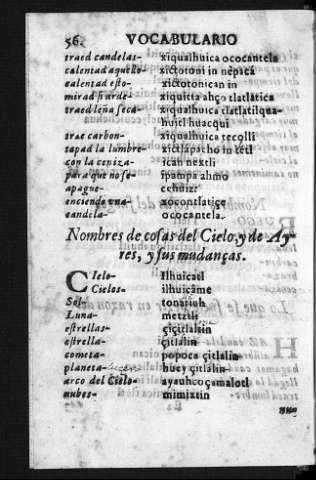 56. VOCABULARIO
traed candelas- xiqualhuica ococantela
calentad aquello- xictotoni in nepacá
calentad esto- xictotonican in
mirad si arde- xiquitta ahço tlatlàtica
traed leña seca- xiqualhuica tlatlatilqua-
huitl huacqui
trae carbon- xiqualhuica tecolli
tapad la lumbre- xictlàpacho in tetl
con la ceniza- ican nextli
para que no se- ipampa ahmo
apague- cehuiz
enciende vna- xocontlatiçe
candela- ococantela.
Nombres de cosas del Cielo, y de Ay-
res, y sus mudanças.
CIelo- Ilhuicatl
Cielos- ilhuicâme
Sol- tonatiuh
Luna- metztli
estrellas- çiçitlaltin
estrella- çitlalin
cometa- popoca çitlalin
planeta- huey çitlalin
arco del Cielo- ayauhcoçamalotl
nubes- mimixtin